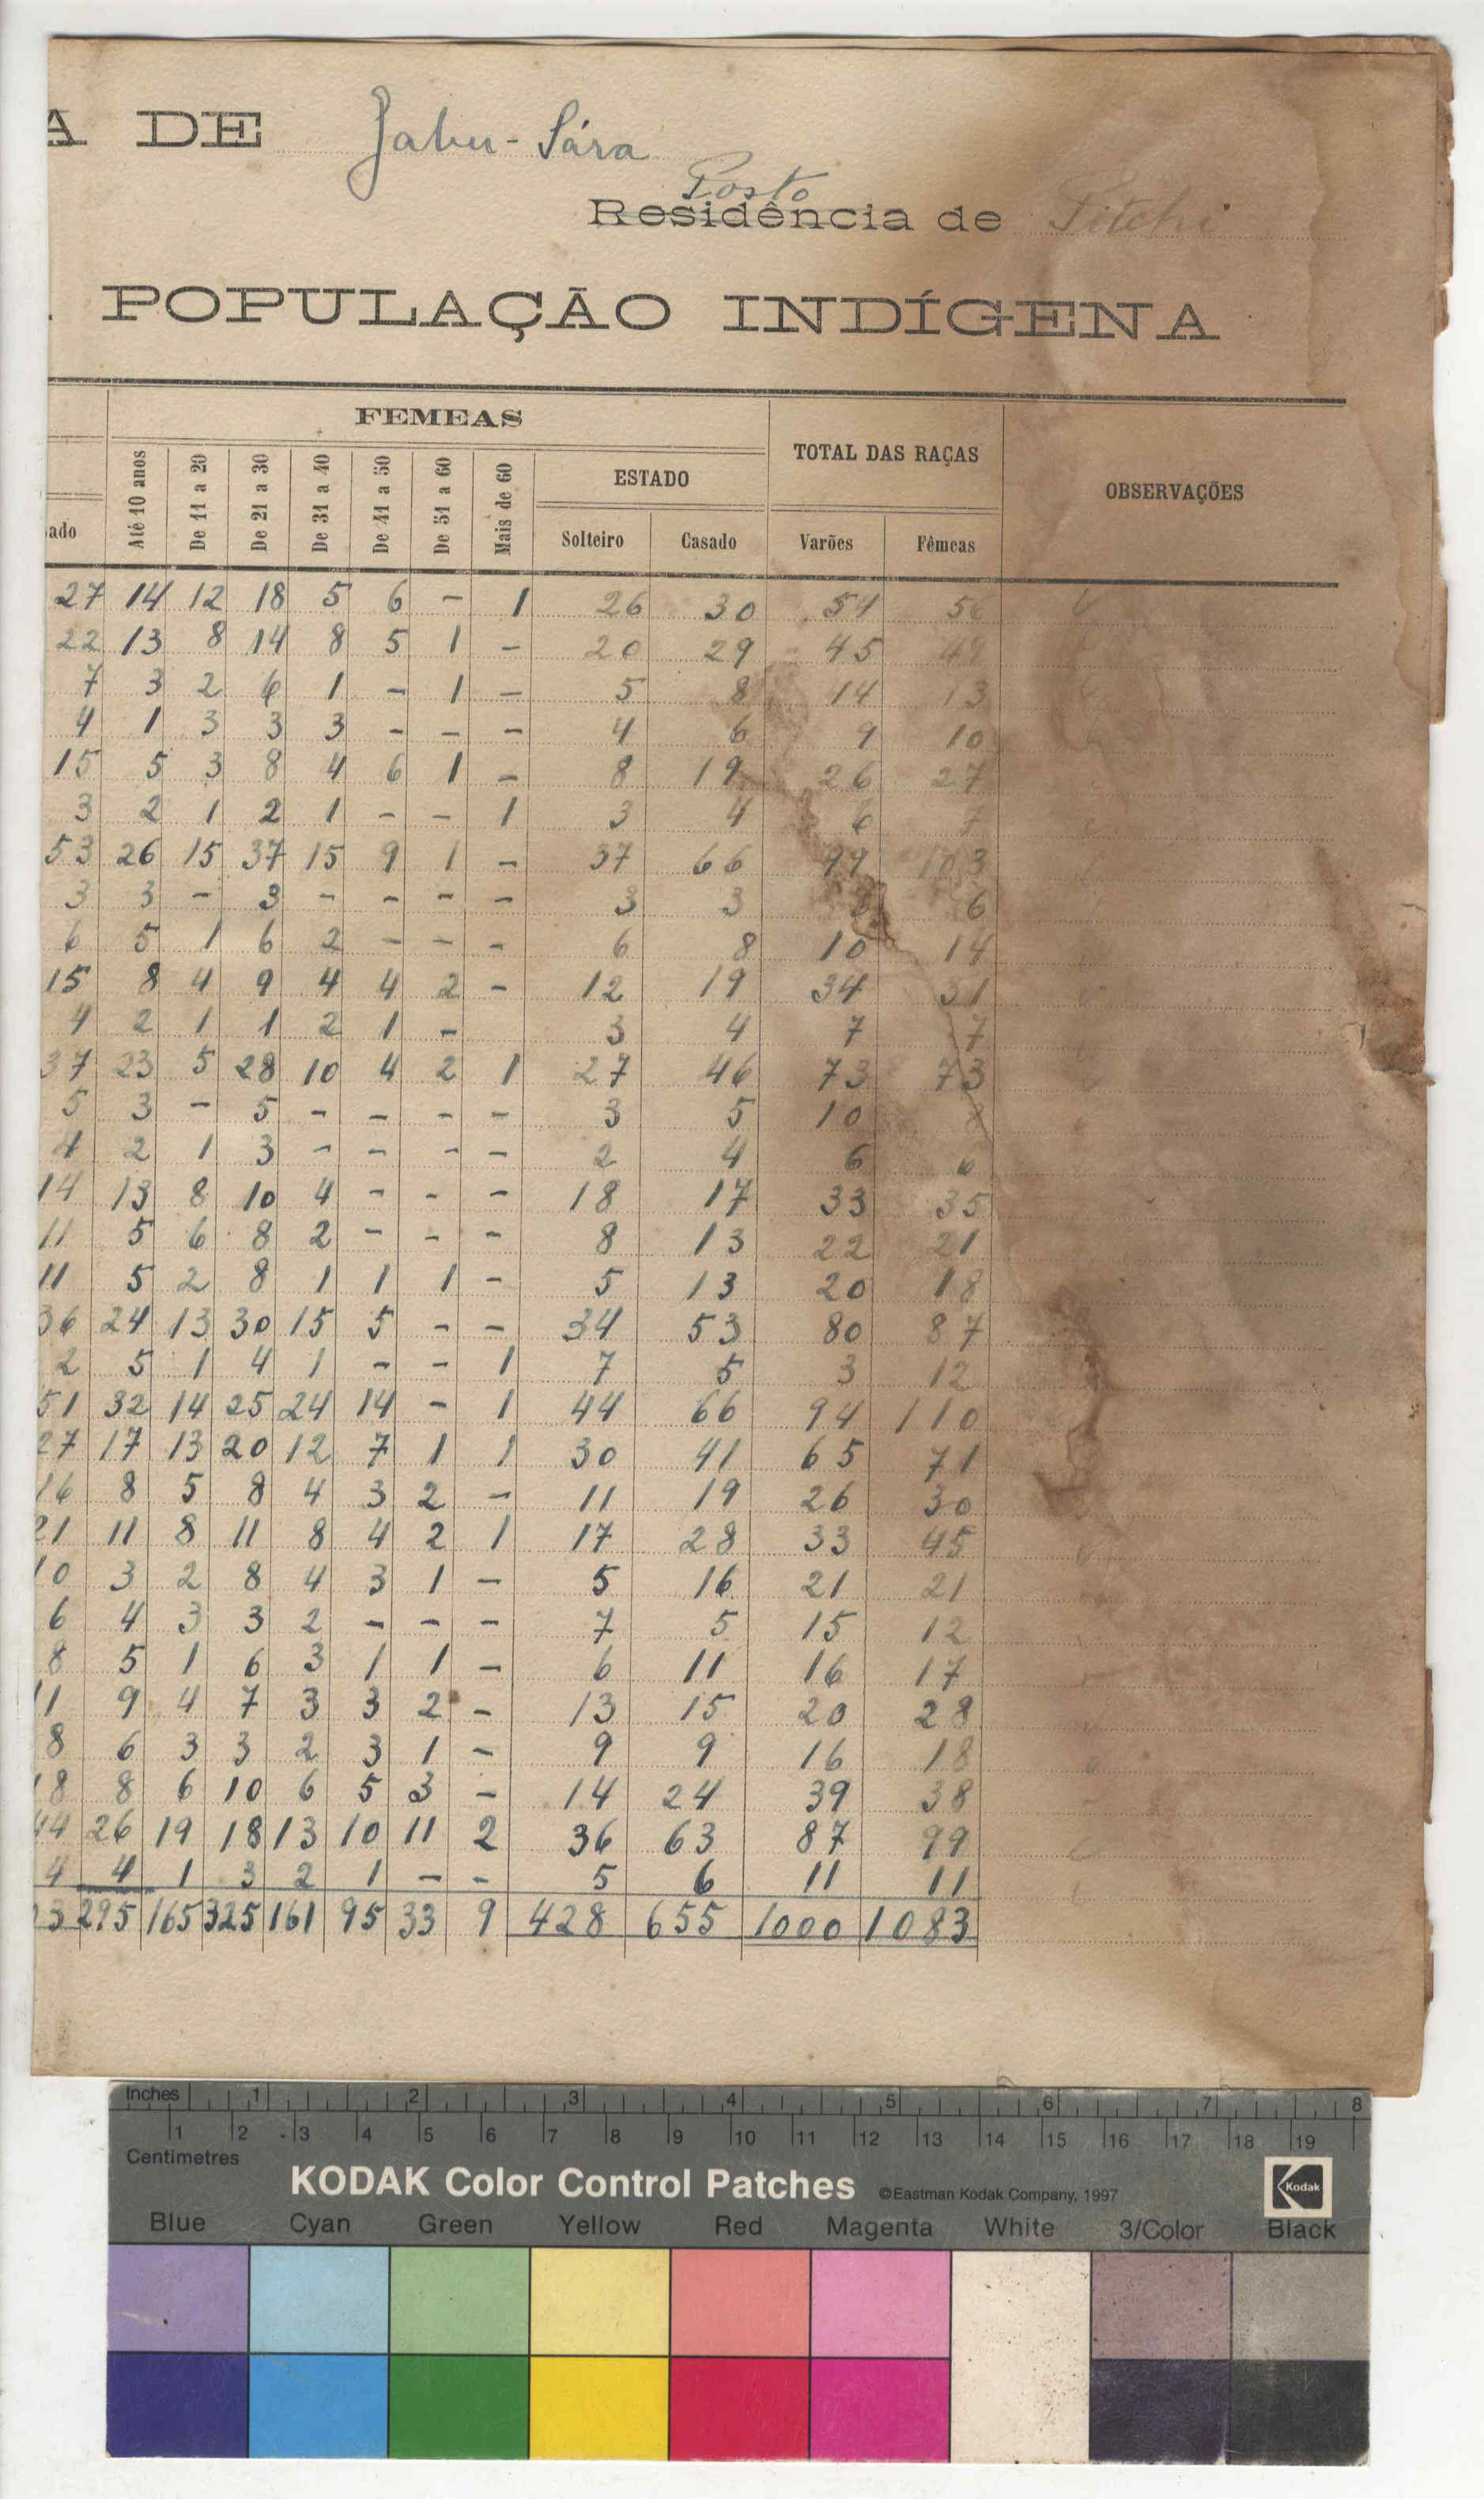 A DE Gabu-Sára
Posto
Residência de Pitchi
POPULAÇÃO INDÍGENA
FEMEAS
TOTAL DAS RAÇAS
OBSERVAÇÕES
ado Até 10 anos De 11 a 20 De 21 a 30 De 31 a 40 De 41 a 50 De 51 a 60 Mais de 60 ESTADO
Solteiro Casado Varões Fêmeas
27 14 12 18 5 6 - 1 26 30 54 56
22 13 8 14 8 5 1 - 20 29 45 49
7 3 2 6 1 - 1 - 5 8 14 13
4 1 3 3 3 - - - 4 6 9 10
15 5 3 8 4 6 1 - 8 19 26 27
3 2 1 2 1 - - 1 3 4 6 7
53 26 15 37 15 9 1 - 37 66 99 103
3 3 - 3 - - - - 3 3 6
6 5 1 6 2 - - - 6 8 10 14
15 8 4 9 4 4 2 - 12 19 34 31
4 2 1 1 2 1 - 3 4 7 7
37 23 5 28 10 4 2 1 27 46 73 73
5 3 - 5 - - - - 3 5 10 8
4 2 1 3 - - - - 2 4 6 6
14 13 8 10 4 - - - 18 17 33 35
11 5 6 8 2 - - - 8 13 22 21
11 5 2 8 1 1 1 - 5 13 20 18
36 24 13 30 15 5 - - 34 53 80 87
2 5 1 4 1 - - 1 7 5 3 12
51 32 14 25 24 14 - 1 44 66 94 110
27 17 13 20 12 7 1 1 30 41 65 71
16 8 5 8 4 3 2 - 11 19 26 30
21 11 8 11 8 4 2 1 17 28 33 45
10 3 2 8 4 3 1 - 5 16 21 21
6 4 3 3 2 - - - 7 5 15 12
8 5 1 6 3 1 1 - 6 11 16 17
11 9 4 7 3 3 2 - 13 15 20 28
8 6 3 3 2 3 1 - 9 9 16 18
18 8 6 10 6 5 3 - 14 24 39 38
44 26 19 18 13 10 11 2 36 63 87 99
4 4 1 3 2 1 - - 5 6 11 11
3 295 165 325 161 95 33 9 428 655 1000 1083
Inches 1 2 3 4 5 6 7 8
1 2 3 4 5 6 7 8 9 10 11 12 13 14 15 16 17 18 19
Centimetres
KODAK Color Control Patches ©Eastman Kodak Company, 1997 Kodak
Blue Cyan Green Yellow Red Magenta White 3/Color Black